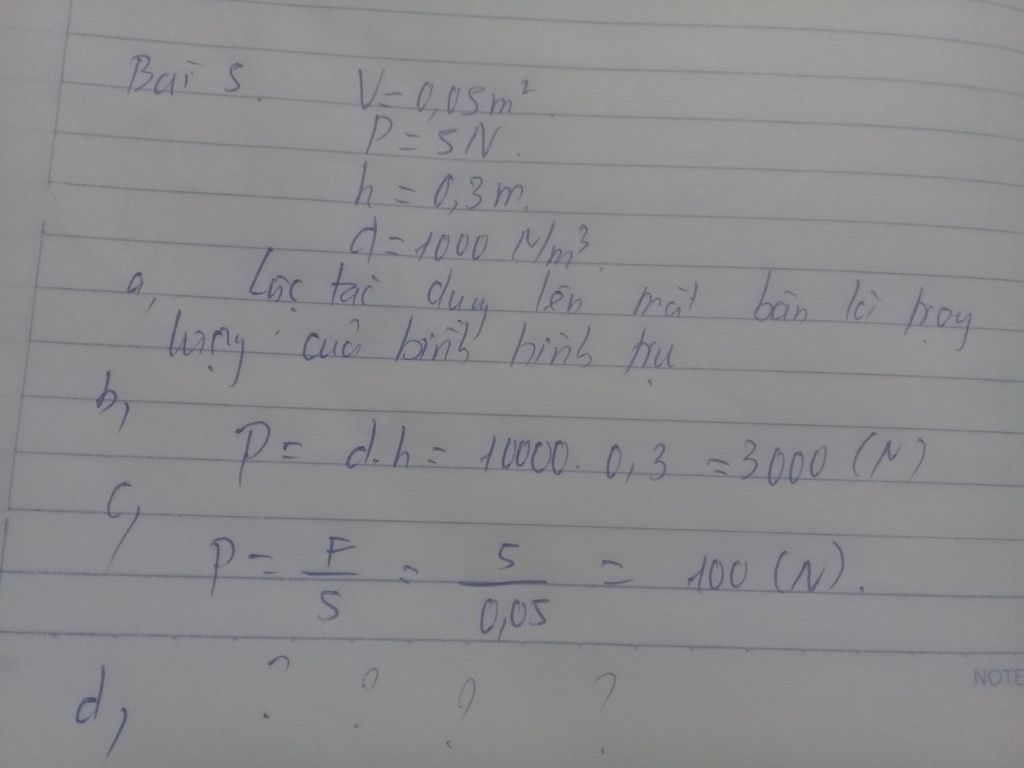 Bài 5. V = 0,05 m²
P = 5N.
h = 0,3 m.
d = 1000 N/m³.
a, Lực tác dụng lên mặt bàn là trọng
lượng của bình hình trụ
b,
P = d.h = 10000. 0,3 = 3000 (N)
c,
P = F/S = 5/0,05 = 100 (N).
NOTE
d, ? ? ? ?